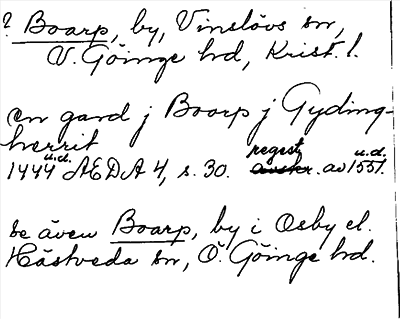 ? Boarp, by, Vinslövs sn,
V. Göinge hd, Krist. l.
en gard j Boarp j Gyding-
herrit
1444 u.d. ÆDA 4, s. 30. regest av 1551 u.d.
se även Boarp, by i Osby el.
Hästveda sn, Ö. Göinge hd.